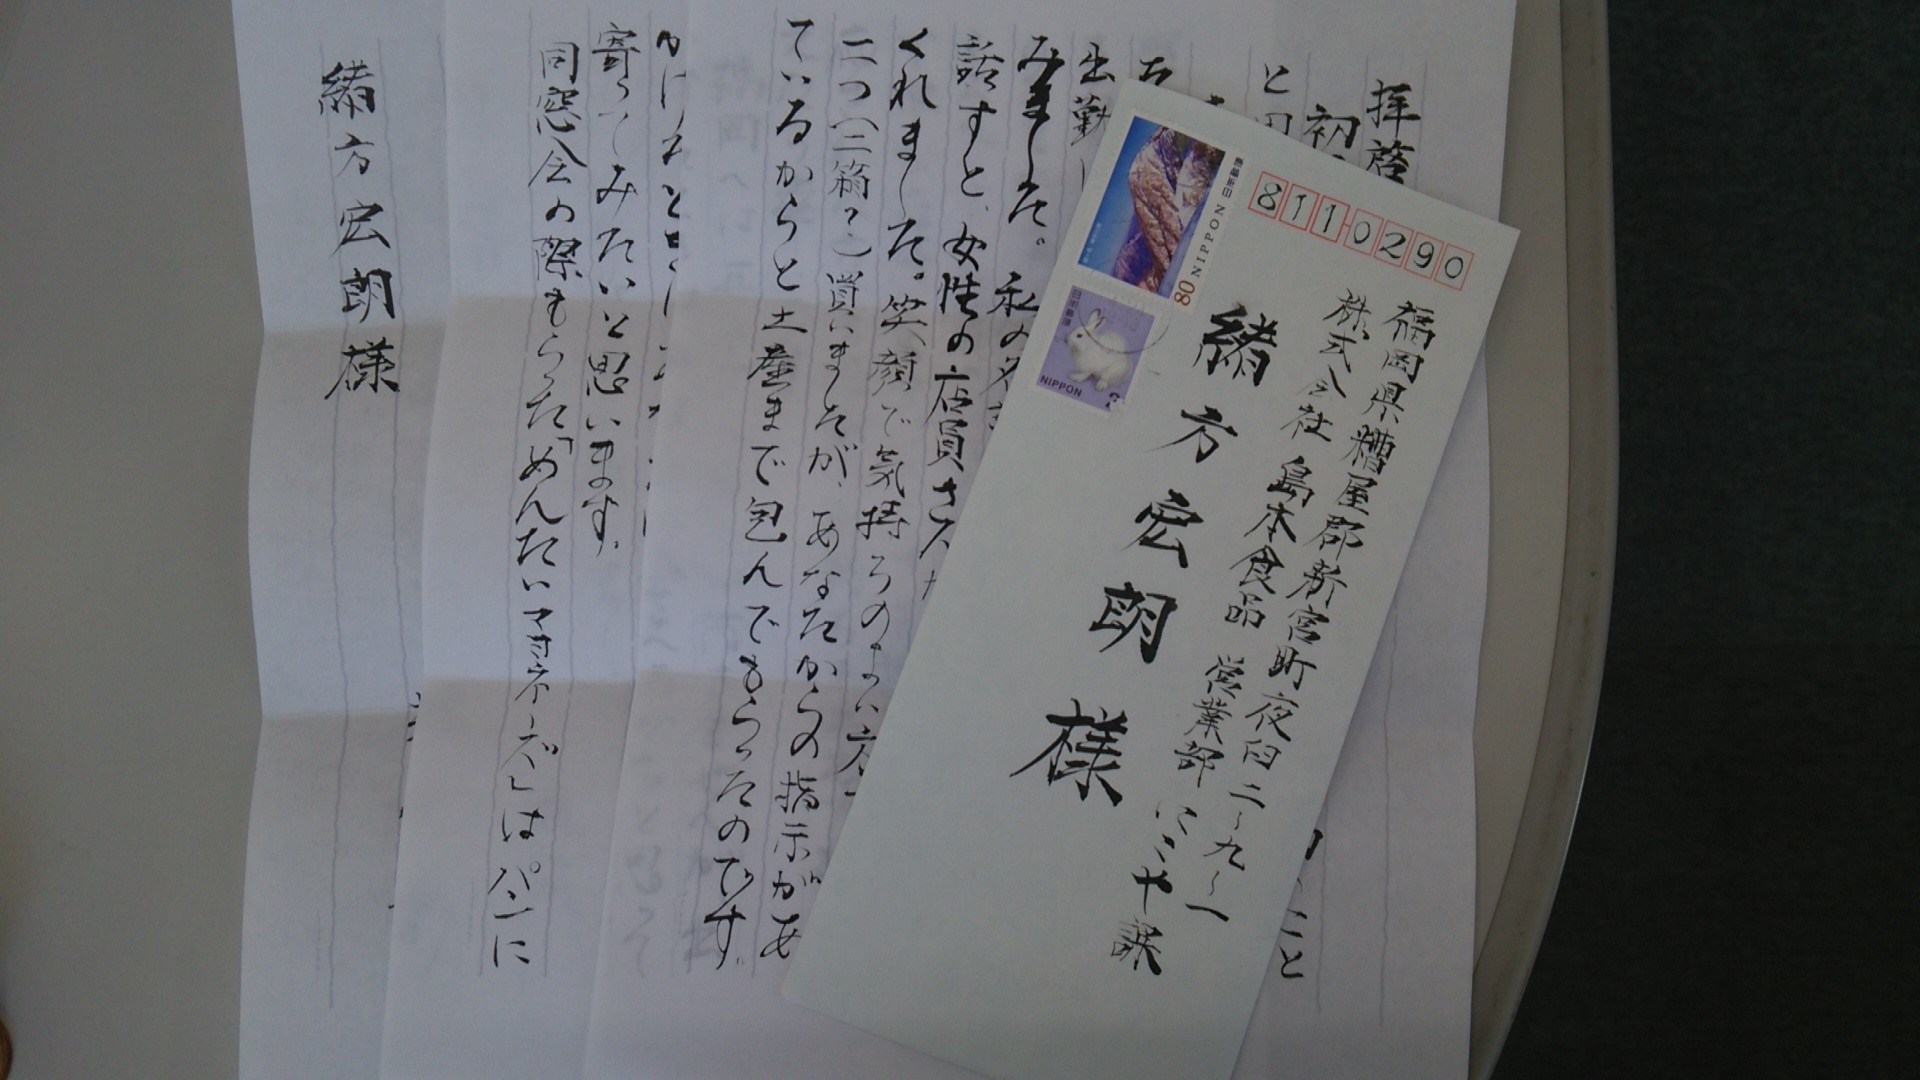 8110290
福岡県糟屋郡新宮町夜臼二〜九〜一
株式会社 島本食品 営業部
緒方宏朗様
80 NIPPON
日本郵便
NIPPON
拝啓
初
と
出勤
みました。私の
話すと、女性の店員さん
くれました。笑顔で気持ちのよい
二つ(二箱?)買いましたが、あなたからの指示があ
ているからと土産まで包んでもらったのです。
寄ってみたいと思います。
同窓会の際もらった「めんたいマヨネーズ」はパンに
緒方宏朗様